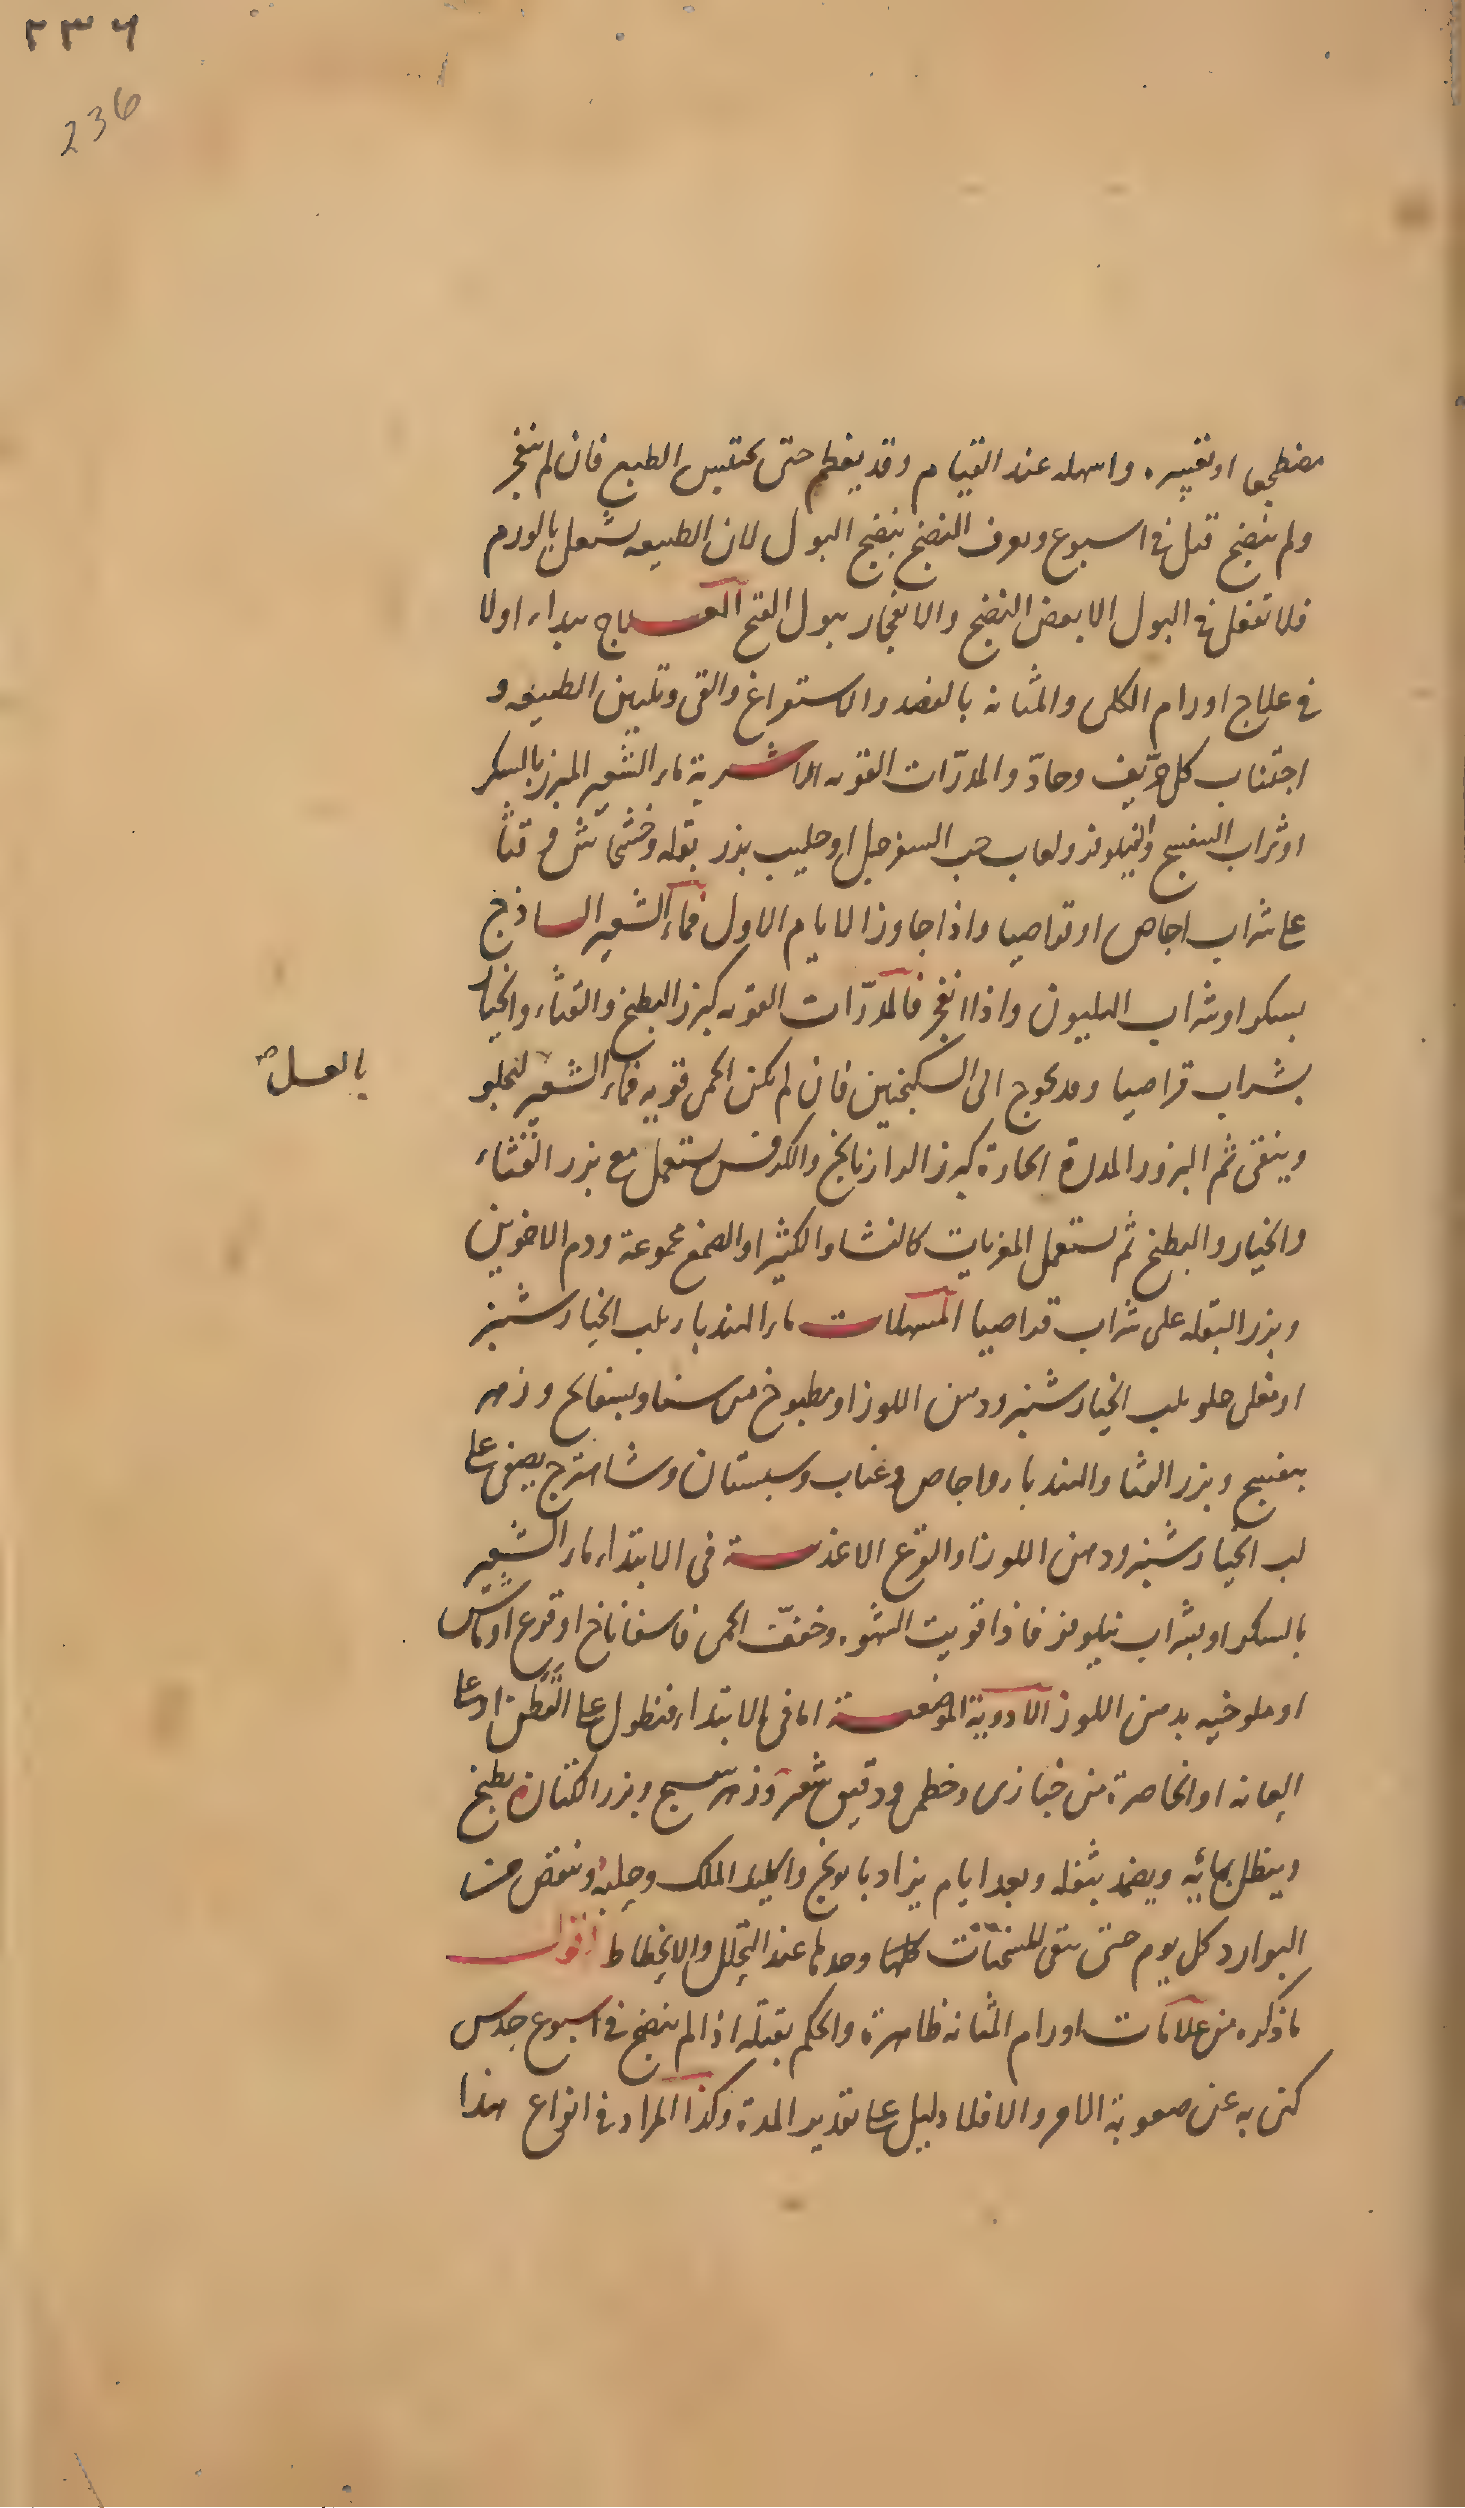 ٢٣٦
236
مضطجعا او نقيره واسهله عند القيام وقد يعظم حتى يحتبس الطبع فان لم ينفجر
ولم ينضج قتل في اسبوع ويعرف النضج بنضج البول لان الطبيعه تشتغل بالورم
فلا تفعل في البول الا بعض النضج والانفجار ببول القيح العلاج يبداء اولا
في علاج اورام الكلى والمثانة بالفصد والاستفراغ والقى وتليين الطبيعه و
اجتناب كل حريف وحادّ والمدرّات القويه الاشربة ماء الشعير المبزر بالسكر
او شراب البنفسج والنيلوفر ولعاب حب السفرجل او حليب بزر بقله وخشخاش وقثا
على شراب اجاص او قراصيا واذا جاوز الايام الاول فماء الشعير الساذج
بسكر او شراب الهليون واذا انفجر فالمدرّات القويه كبزر البطيخ والقثاء والخيار
بشراب قراصيا وقد يحوج الى السكنجبين فان لم تكن الحمى قويه فماء الشعير ليجلو
بالعسل صح
وينقى ثم البزور المدرة الحارة كبزر الرازيانج والكرفس يستعمل مع بزر القثاء
والخيار والبطيخ ثم يستعمل المغريات كالنشا والكثيرا والصمغ مجموعة ودم الاخوين
وبزر البقله على شراب قراصيا المسهلات ماء الهندباء بلب الخيار شنبر
او نقلى حلو بلب الخيار شنبر ودهن اللوز او مطبوخ من سنا وبسفايح وزهر
بنفسج وبزر القثا والهندباء واجاص وعناب وسبستان وشاهترج يصفى على
لب الخيار شنبر ودهن اللوز او القرع الاغذية في الابتداء ماء الشعير
بالسكر او بشراب نيلوفر فاذا قويت الشهوه وخفّت الحمى فاسفاناخ او قرع او ماش
او ملوخيه بدهن اللوز الادوية الموضعية اما في الابتداء فنطول على القطن او على
العانه او الخاصرة من خبازى وخطمى ودقيق شعير وزهر بنفسج وبزر الكتان يطبخ
وينطل بمائه ويضمد بثفله وبعد ايام يزاد بابونج واكليل الملك وحلبه وينقص من
البوارد كل يوم حتى تبقى المسخنات كلها وحدها عند التحلل والانحطاط اقول
ما ذكره من علامات اورام المثانه ظاهرة والحكم بقتله اذا لم ينضج في اسبوع حدس
كنى به عن صعوبة الامر والا فلا دليل على تقدير المدة وكذا المراد في انواع هذا